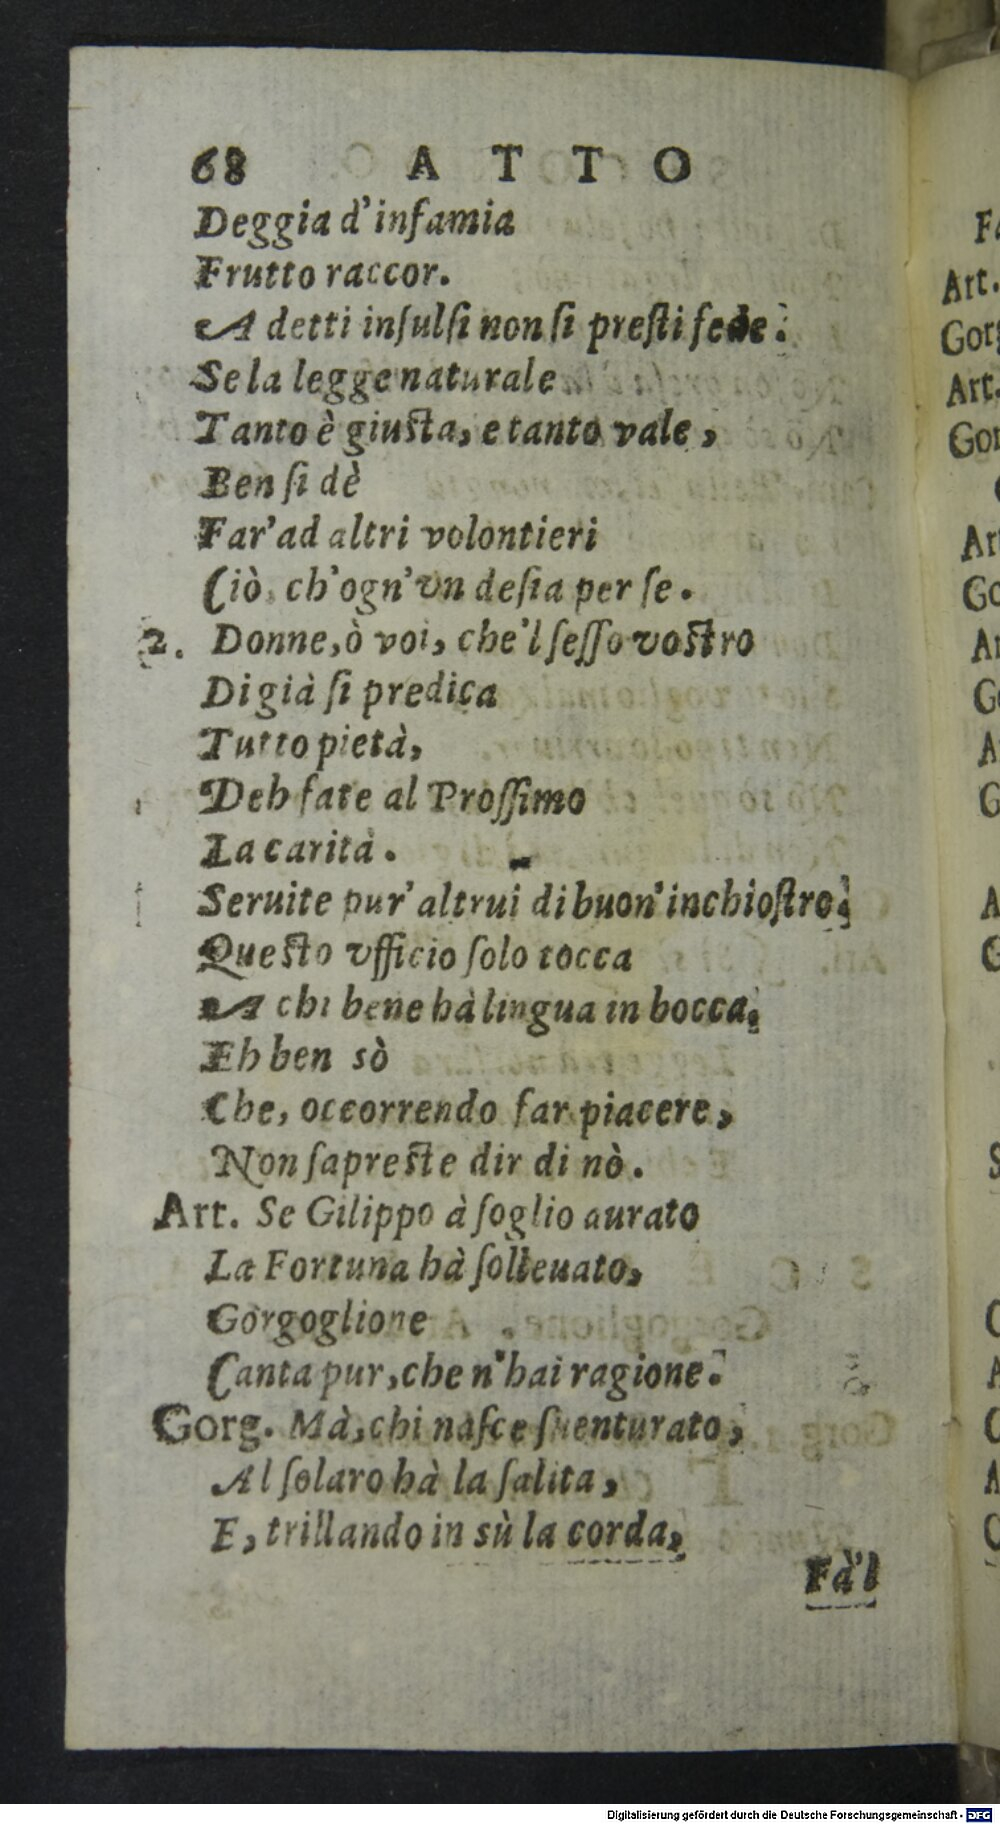 68 ATTO
Deggia d'infamia
Frutto raccor.
A detti inſulſi non ſi preſti fede.
Se la legge naturale
Tanto è giuſta, e tanto vale,
Ben ſi dè
Far'ad altri volontieri
Ciò, ch'ogn'vn deſia per ſe.
2. Donne, ò voi, che'l ſeſſo voſtro
Di già ſi predica
Tutto pietà,
Deh fate al Proſſimo
La carità.
Seruite pur'altrui di buon'inchioſtro;
Queſto vfficio ſolo tocca
A chi bene hà lingua in bocca;
Eh ben sò
Che, occorrendo far piacere,
Non ſapreſte dir di nò.
Art. Se Gilippo à ſoglio aurato
La Fortuna hà ſolleuato,
Gorgoglione
Canta pur, che n'hai ragione.
Gorg. Mà, chi naſce ſuenturato,
Al ſolaro hà la ſalita,
E, trillando in sù la corda,
Fà'l
Art.
Gorg
Art.
Digitalisierung gefördert durch die Deutsche Forschungsgemeinschaft - DFG